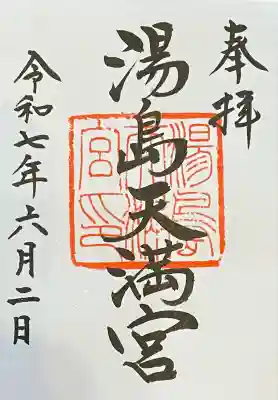 奉拝
湯島天満宮
令和七年六月二日